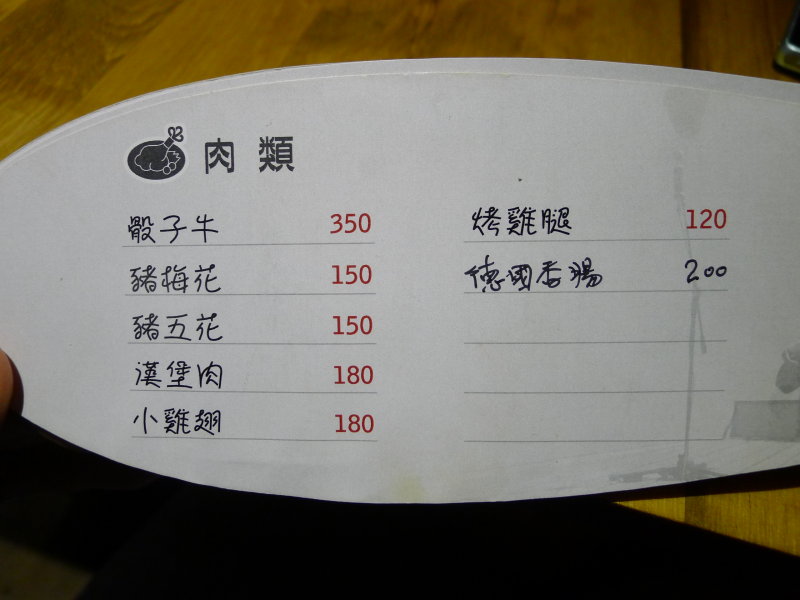 肉類
骰子牛 350
豬梅花 150
豬五花 150
漢堡肉 180
小雞翅 180
烤雞腿 120
德國香腸 200